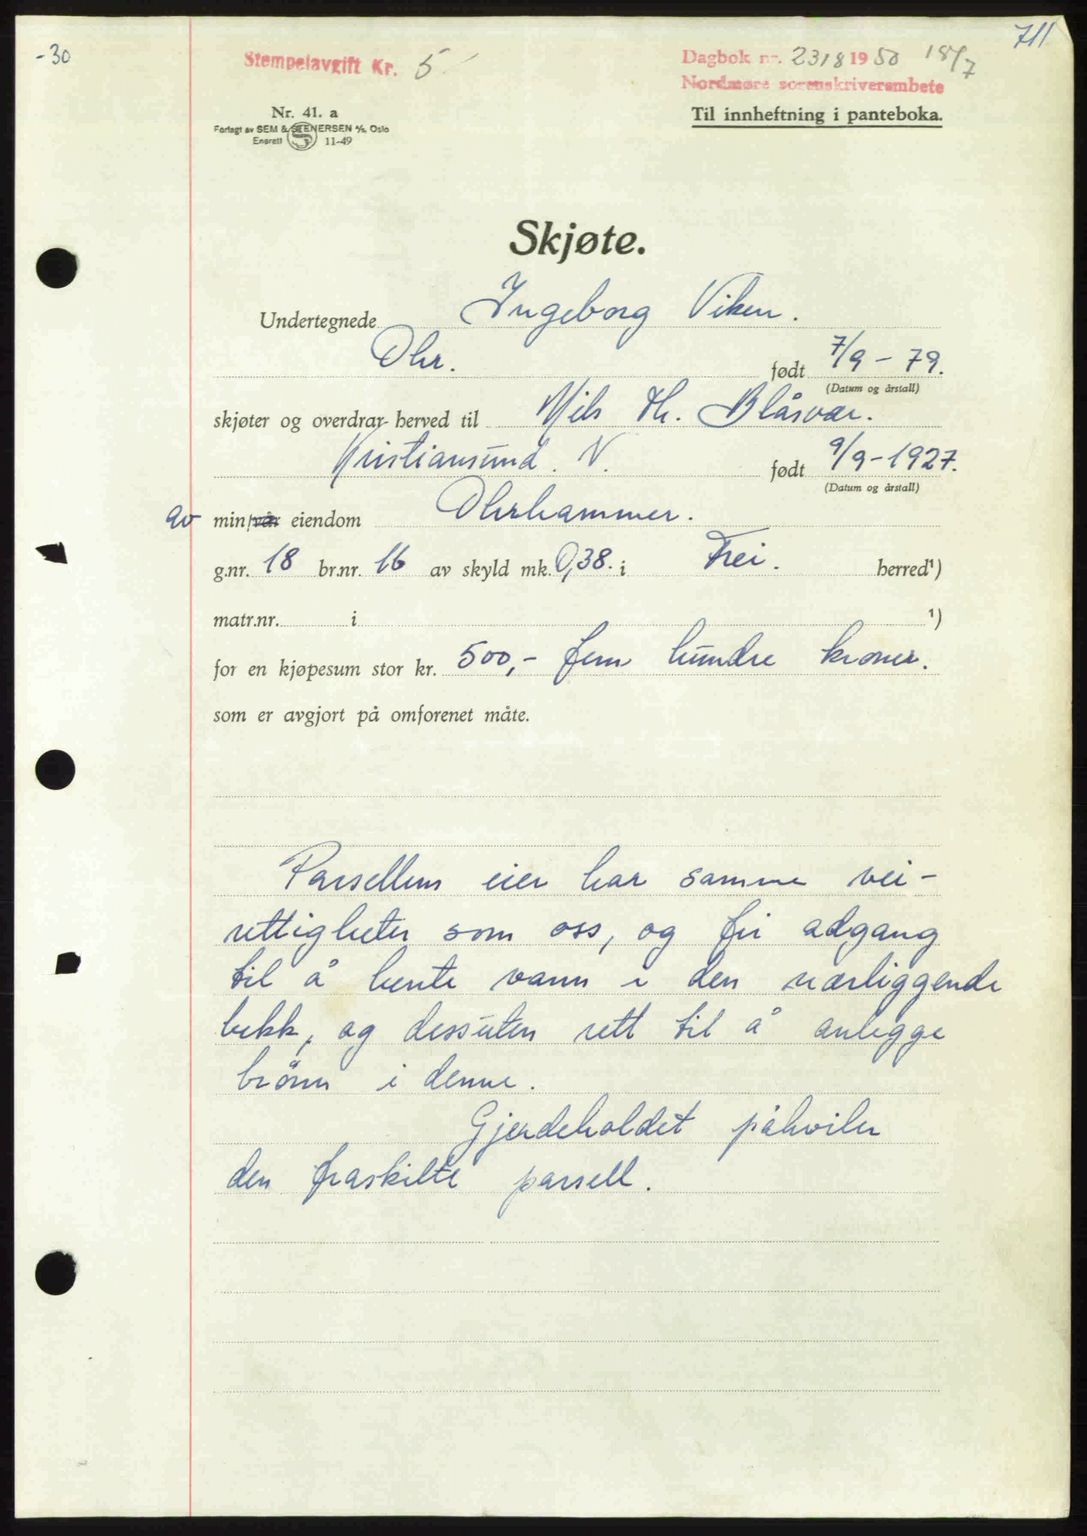 -30
711
Stempelavgift Kr. 5
Dagbok nr. 2318 1950 18/7
Nordmøre sorenskriverembete
Nr. 41. a
Forlagt av SEM & STENERSEN A/S, Oslo
Enerett 11-49
Til innheftning i panteboka.
Skjøte.
Undertegnede Ingeborg Viken.
Ohr. født 7/9 - 79.
(Datum og årstall)
skjøter og overdrar herved til Nils Th. Blåsvær.
Kristiansund. N. født 9/9-1927.
(Datum og årstall)
av min/vår eiendom Ohrhammer.
g.nr. 18 br.nr. 16 av skyld mk. 0,38. i Frei. herred¹)
matr.nr. i ¹)
for en kjøpesum stor kr. 500,- fem hundre kroner.
som er avgjort på omforenet måte.
Parsellens eier har samme vei-
rettigheter som oss, og får adgang
til å hente vann i den nærliggende
bekk, og dessuten rett til å anlegge
brønn i denne.
Gjerdeholdet påhviler
den fraskilte parsell.